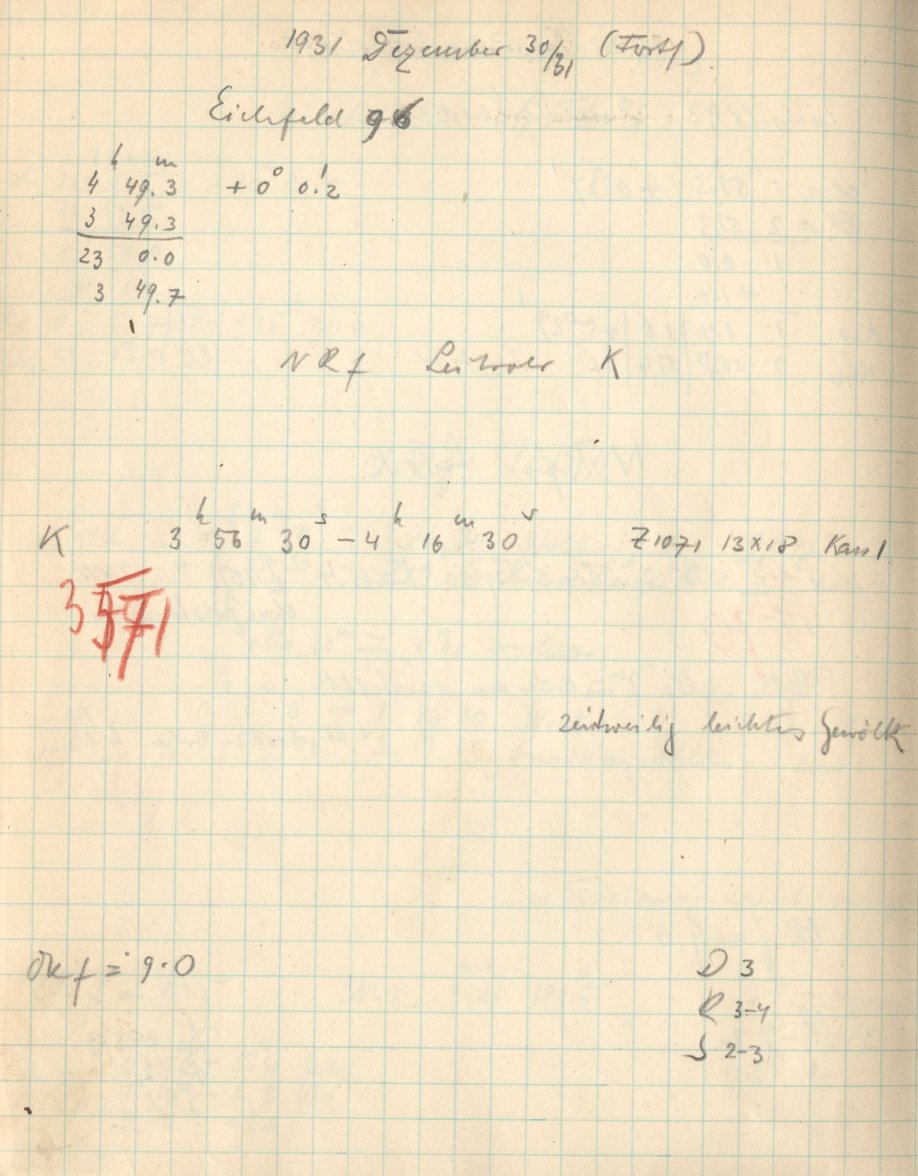 1931 Dezember 30/31 (Forts)
Eichfeld 96
h m
4 49.3 + 0° 0.'2
3 49.3
23 0.0
3 49.7
NRf Leitrohr K
K 3h 56m 30s – 4h 16m 30s Z1071 13×18 Kass 1
zeitweilig leichtes Gewölk
Okf = 9.0
D 3
R 3–4
S 2–3